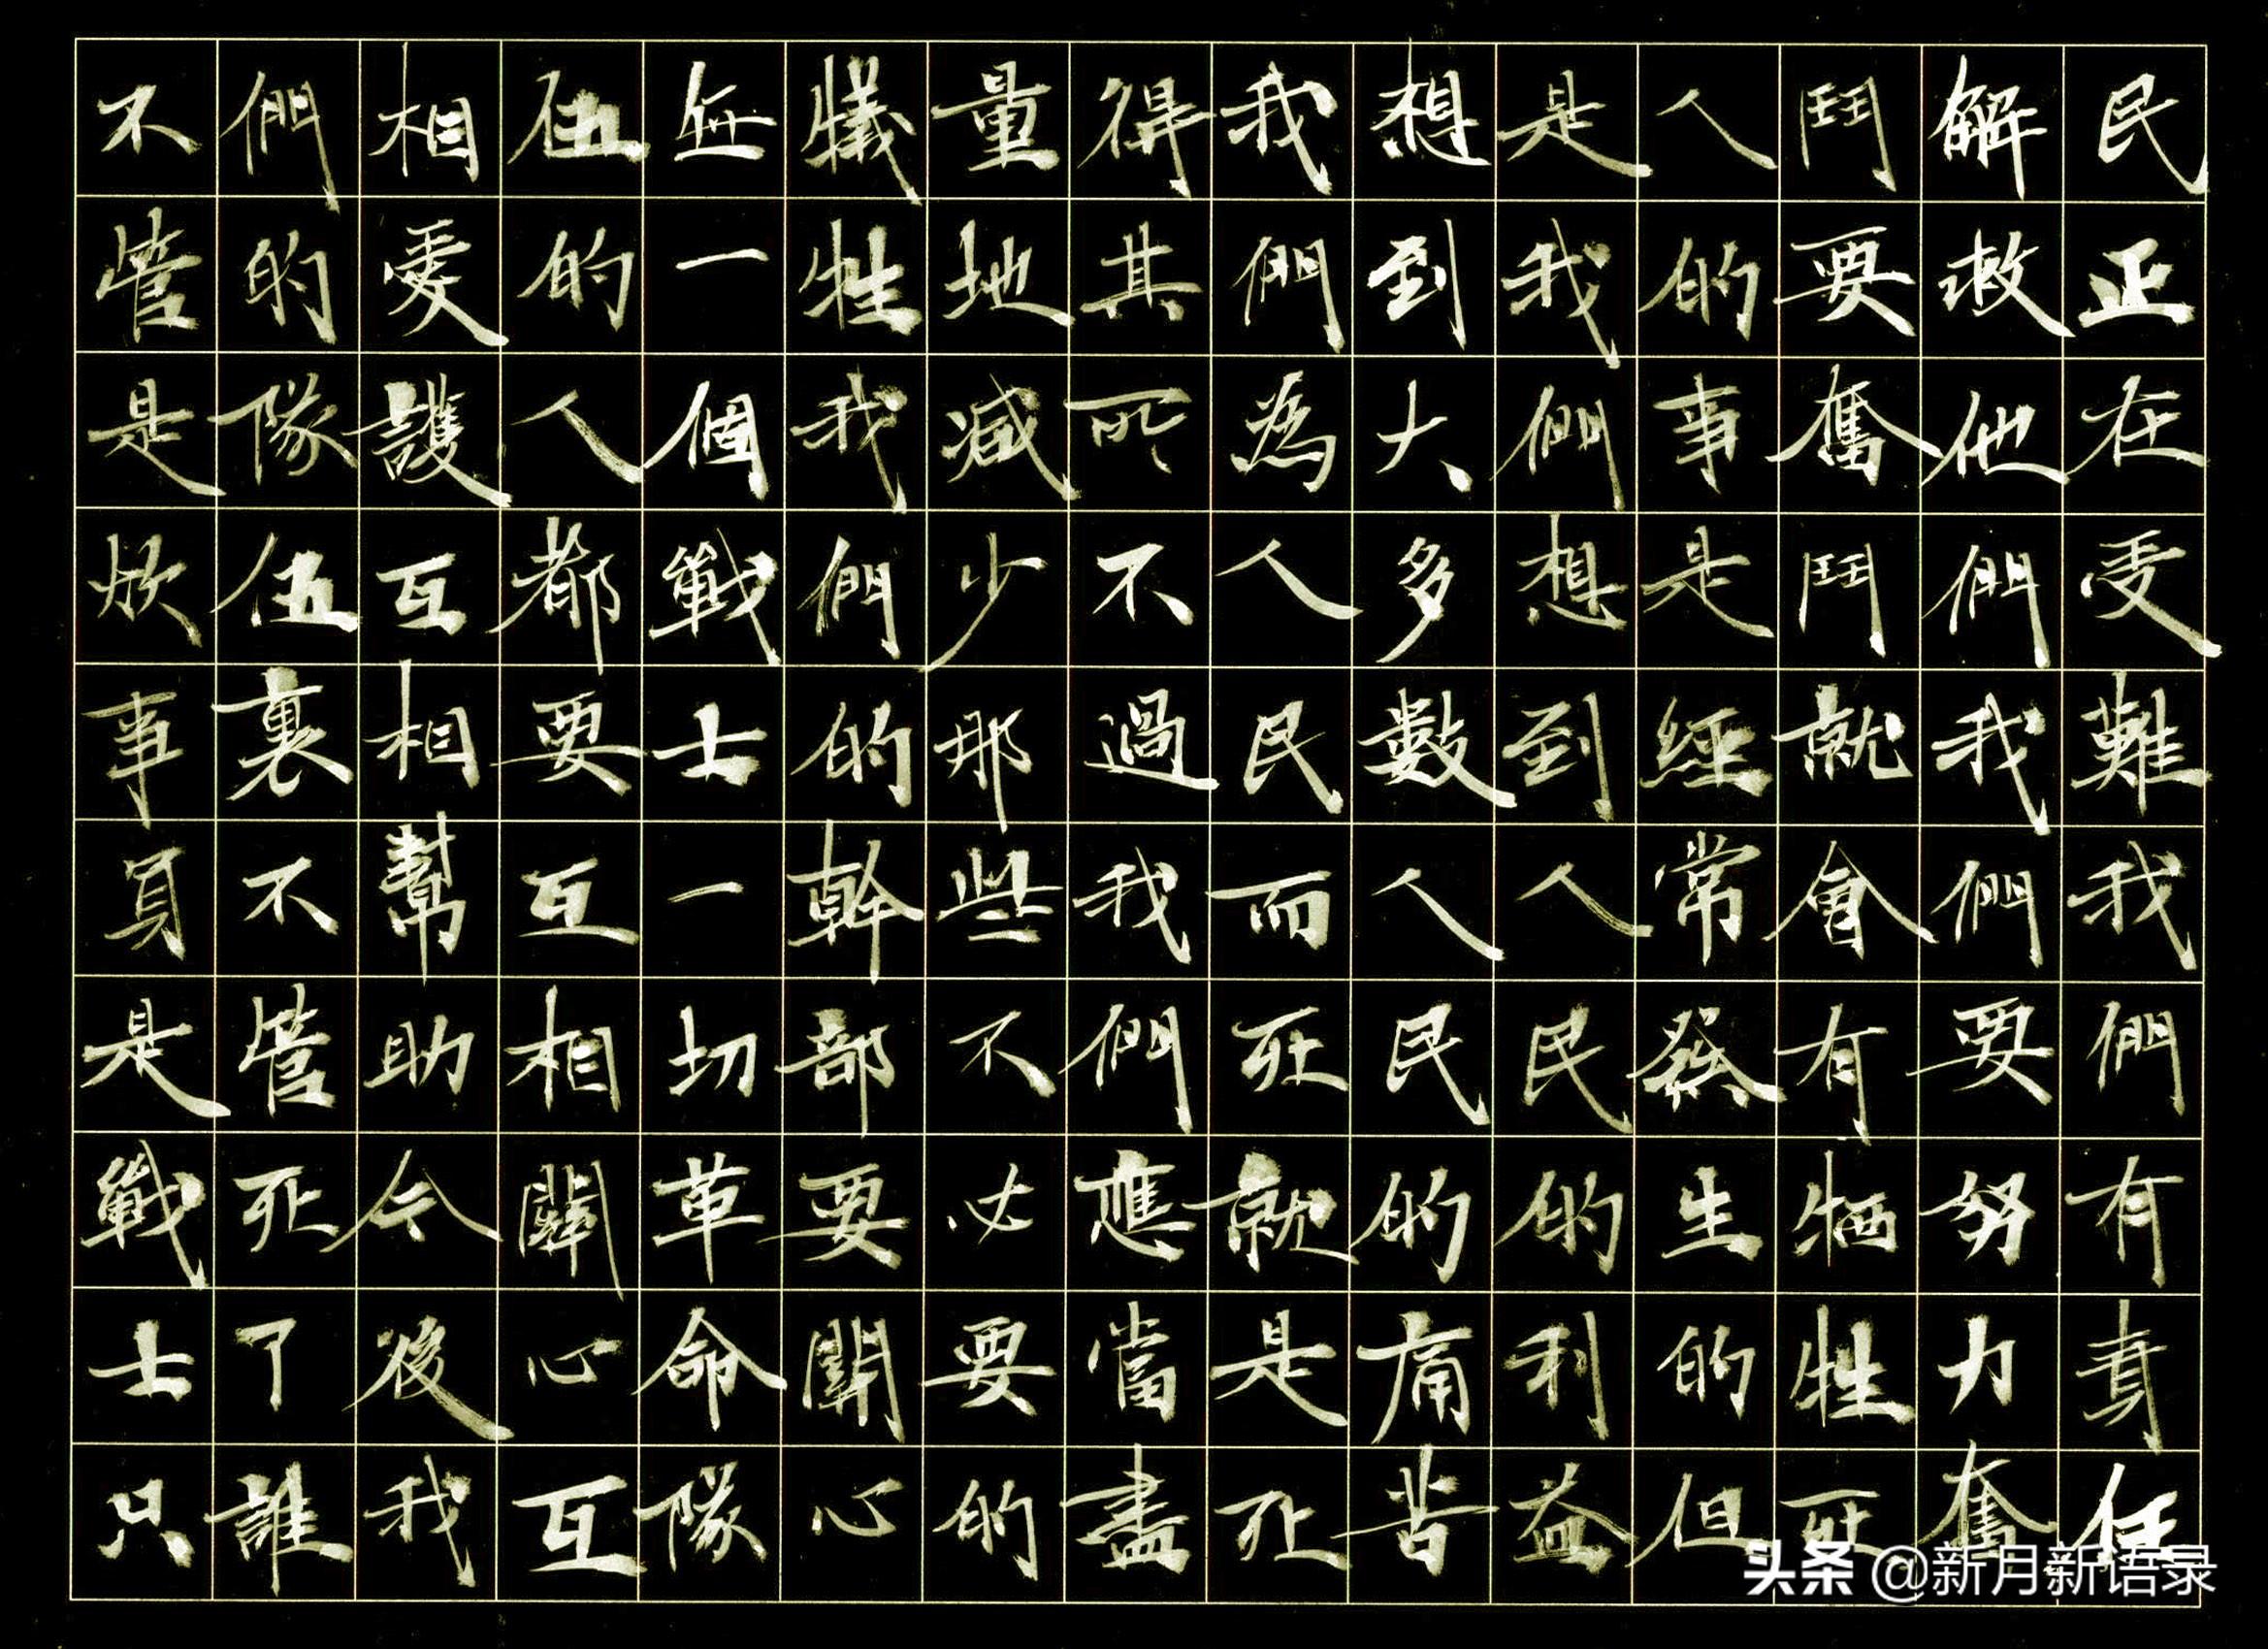 民正在受難我們有責任
解救他們我們要努力奮
鬥要奮鬥就會有牺牲死
人的事是經常發生的但
是我們想到人民的利益
想到大多數人民的痛苦
我們為人民而死就是死
得其所不過我們應當盡
量地减少那些不必要的
犧牲我們的幹部要關心
每一個戰士一切革命隊
伍的人都要互相關心互
相愛護互相幫助今後我
們的隊伍裏不管死了誰
不管是炊事員是戰士只
头条 @新月新语录